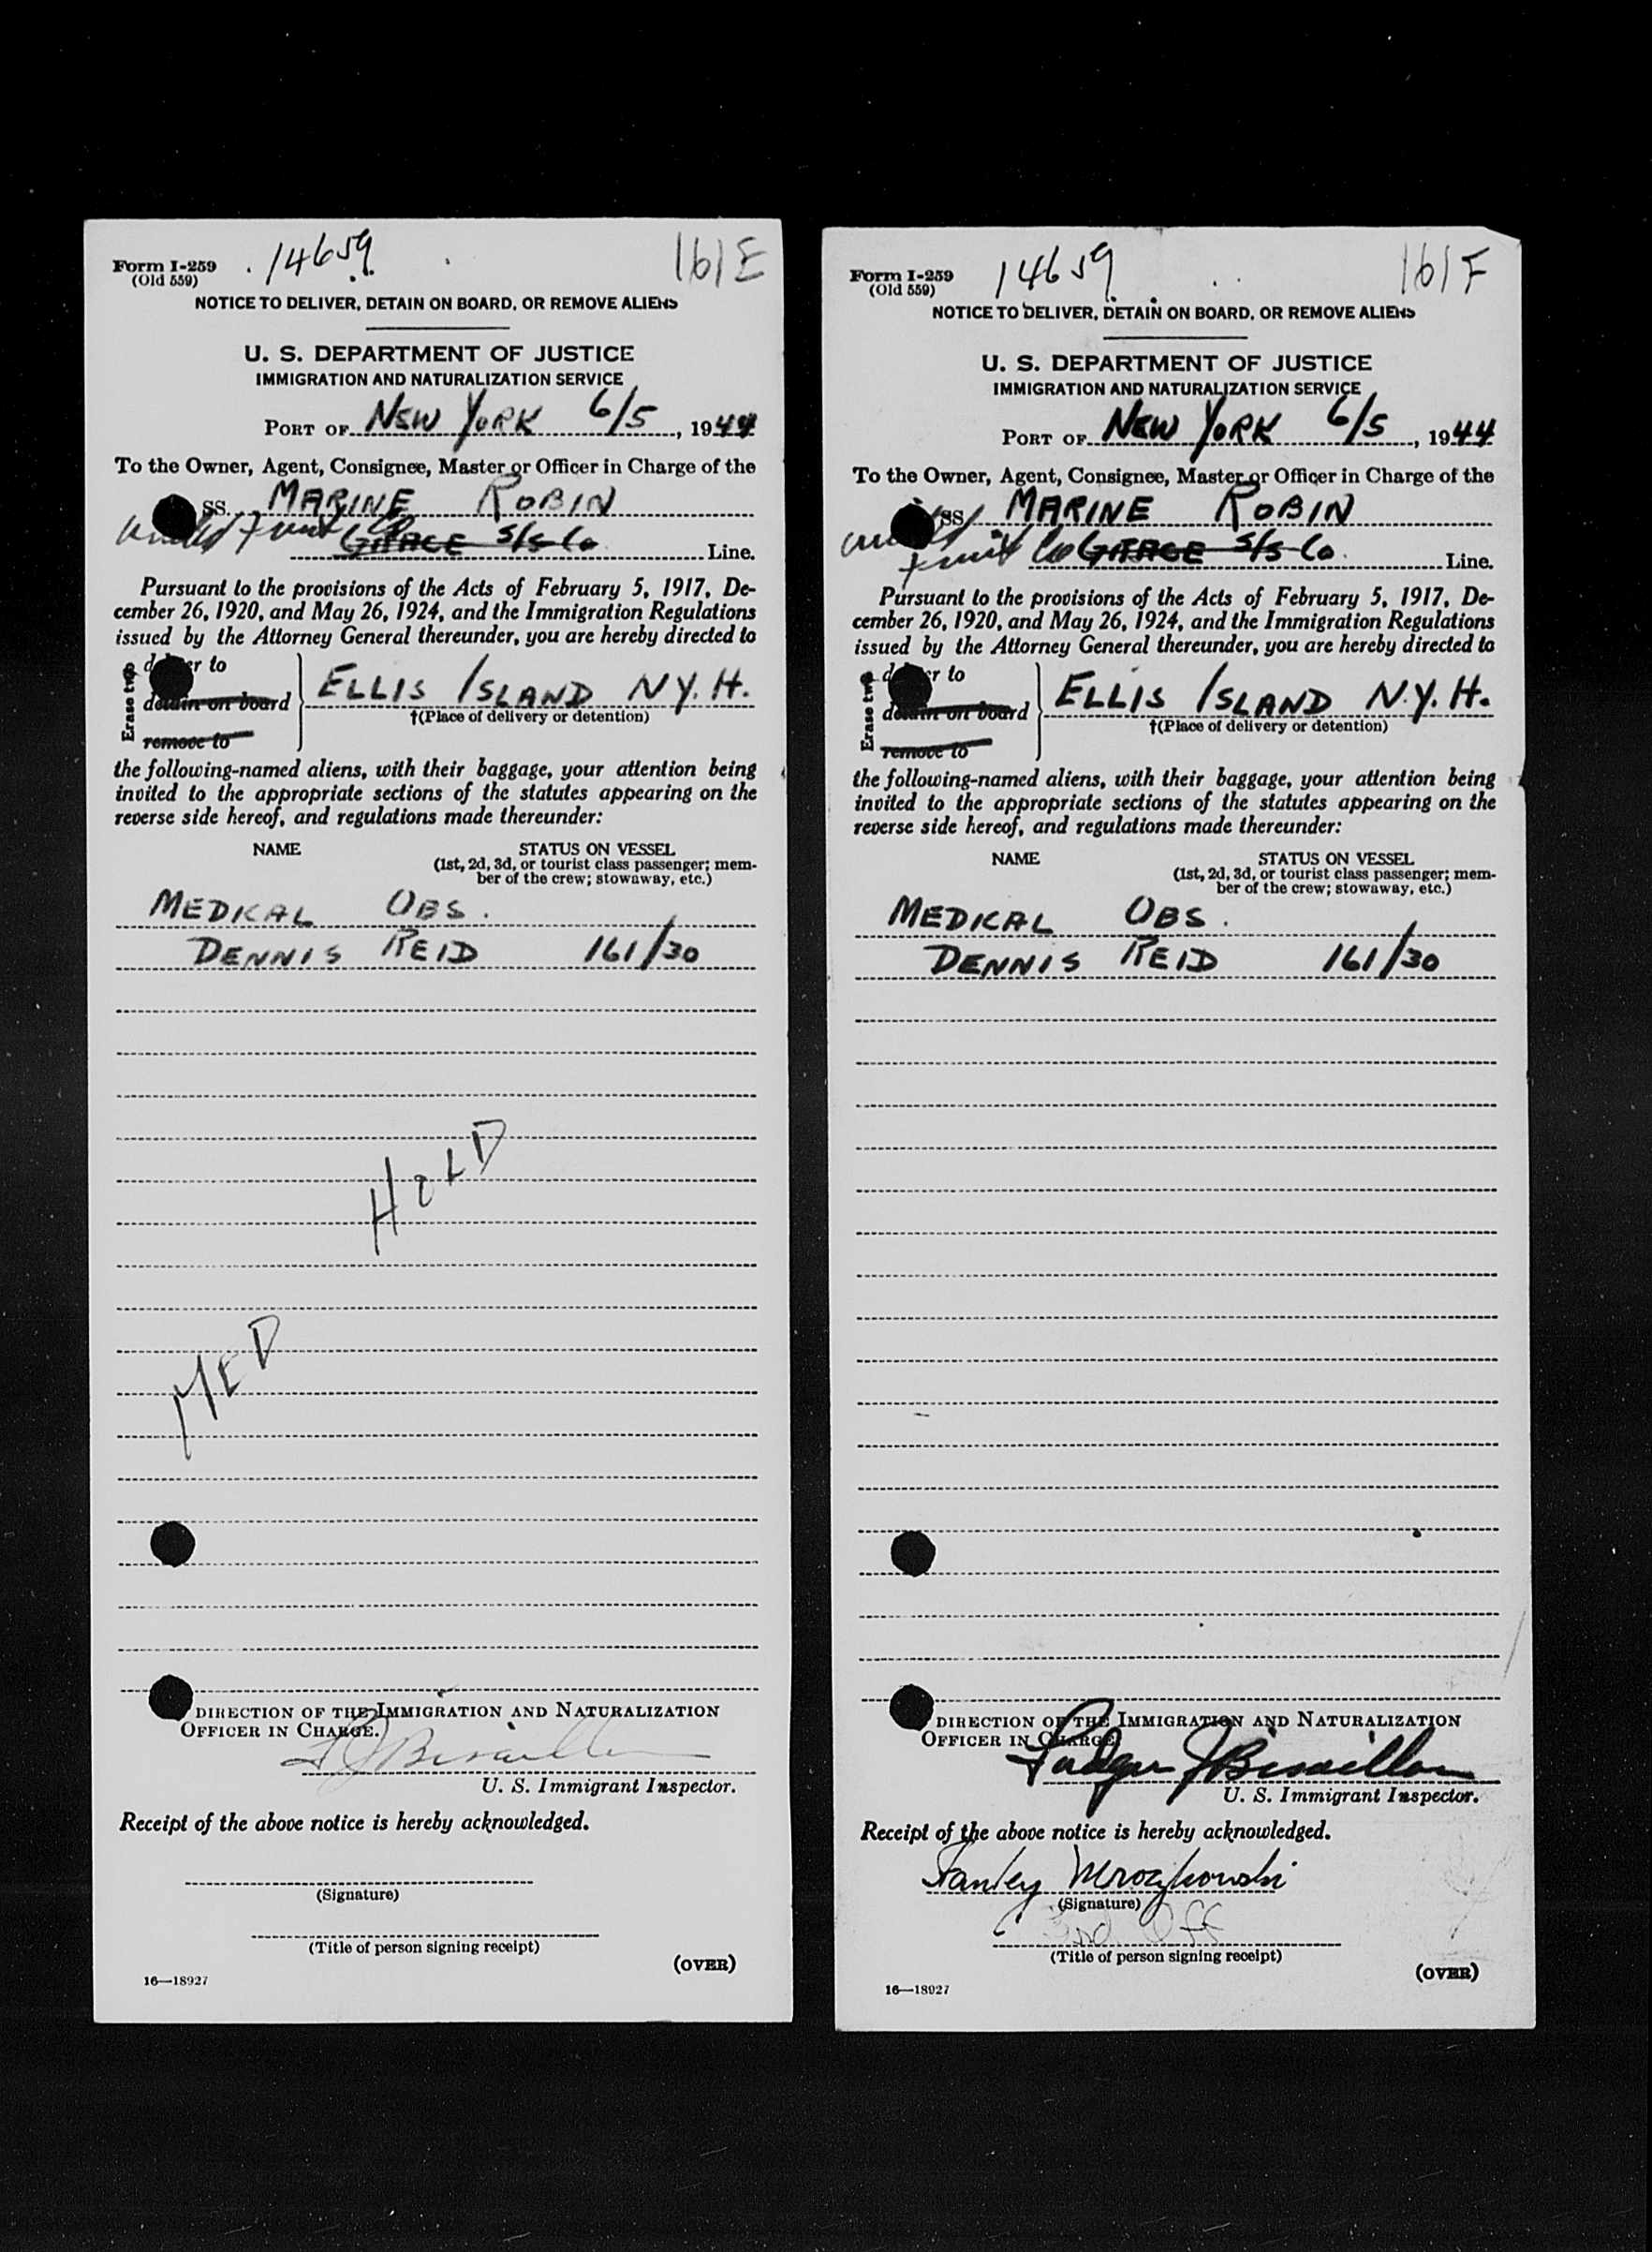 Form I-259
(Old 559)
14659
161E
NOTICE TO DELIVER, DETAIN ON BOARD, OR REMOVE ALIENS
U. S. DEPARTMENT OF JUSTICE
IMMIGRATION AND NATURALIZATION SERVICE
PORT OF NEW YORK 6/5, 1944
To the Owner, Agent, Consignee, Master or Officer in Charge of the
SS. MARINE ROBIN
United Fruit Co GRACE S/S Co Line.
Pursuant to the provisions of the Acts of February 5, 1917, De-
cember 26, 1920, and May 26, 1924, and the Immigration Regulations
issued by the Attorney General thereunder, you are hereby directed to
Erase two
to
detain on board
remove to
ELLIS ISLAND N.Y.H.
†(Place of delivery or detention)
the following-named aliens, with their baggage, your attention being
invited to the appropriate sections of the statutes appearing on the
reverse side hereof, and regulations made thereunder:
NAME STATUS ON VESSEL
(1st, 2d, 3d, or tourist class passenger; mem-
ber of the crew; stowaway, etc.)
MEDICAL OBS.
DENNIS REID 161/30
HOLD
MED
DIRECTION OF THE IMMIGRATION AND NATURALIZATION
OFFICER IN CHARGE.
U. S. Immigrant Inspector.
Receipt of the above notice is hereby acknowledged.
(Signature)
(Title of person signing receipt)
(OVER)
16—18927
Form I-259
(Old 559)
14659
161F
NOTICE TO DELIVER, DETAIN ON BOARD, OR REMOVE ALIENS
U. S. DEPARTMENT OF JUSTICE
IMMIGRATION AND NATURALIZATION SERVICE
PORT OF NEW YORK 6/5, 1944
To the Owner, Agent, Consignee, Master or Officer in Charge of the
SS. MARINE ROBIN
United Fruit Co GRACE S/S Co. Line.
Pursuant to the provisions of the Acts of February 5, 1917, De-
cember 26, 1920, and May 26, 1924, and the Immigration Regulations
issued by the Attorney General thereunder, you are hereby directed to
Erase two
to
detain on board
remove to
ELLIS ISLAND N.Y.H.
†(Place of delivery or detention)
the following-named aliens, with their baggage, your attention being
invited to the appropriate sections of the statutes appearing on the
reverse side hereof, and regulations made thereunder:
NAME STATUS ON VESSEL
(1st, 2d, 3d, or tourist class passenger; mem-
ber of the crew; stowaway, etc.)
MEDICAL OBS.
DENNIS REID 161/30
DIRECTION OF THE IMMIGRATION AND NATURALIZATION
OFFICER IN CHARGE.
U. S. Immigrant Inspector.
Receipt of the above notice is hereby acknowledged.
Stanley
(Signature)
3rd Off
(Title of person signing receipt)
(OVER)
16—18927